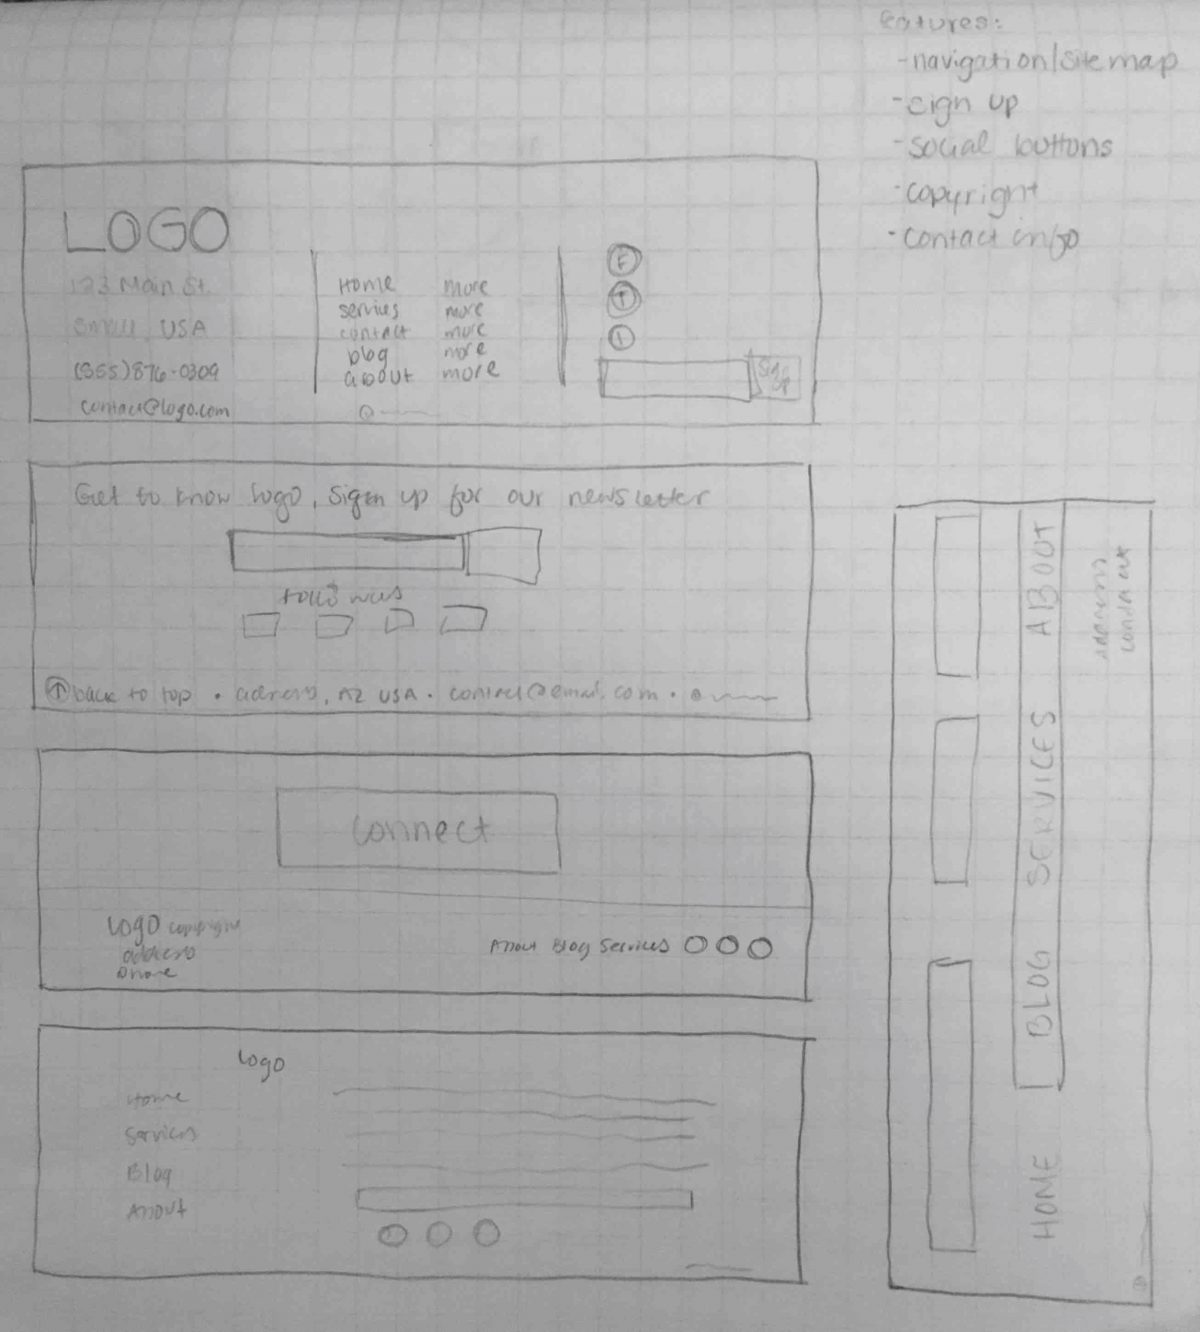 features:
-navigation/sitemap
-sign up
-social buttons
-copyright
-contact info
LOGO
123 Main St.
USA
(555)876-0309
contact@logo.com
Home more
services more
contact more
blog more
about more
F
T
I
Sign
up
Get to know logo, sign up for our newsletter
back to top • address, AZ USA • contact@email.com •
connect
Logo copyright
address
phone
About Blog Services
Logo
Home
Services
Blog
About
HOME BLOG SERVICES ABOUT
Address
contact